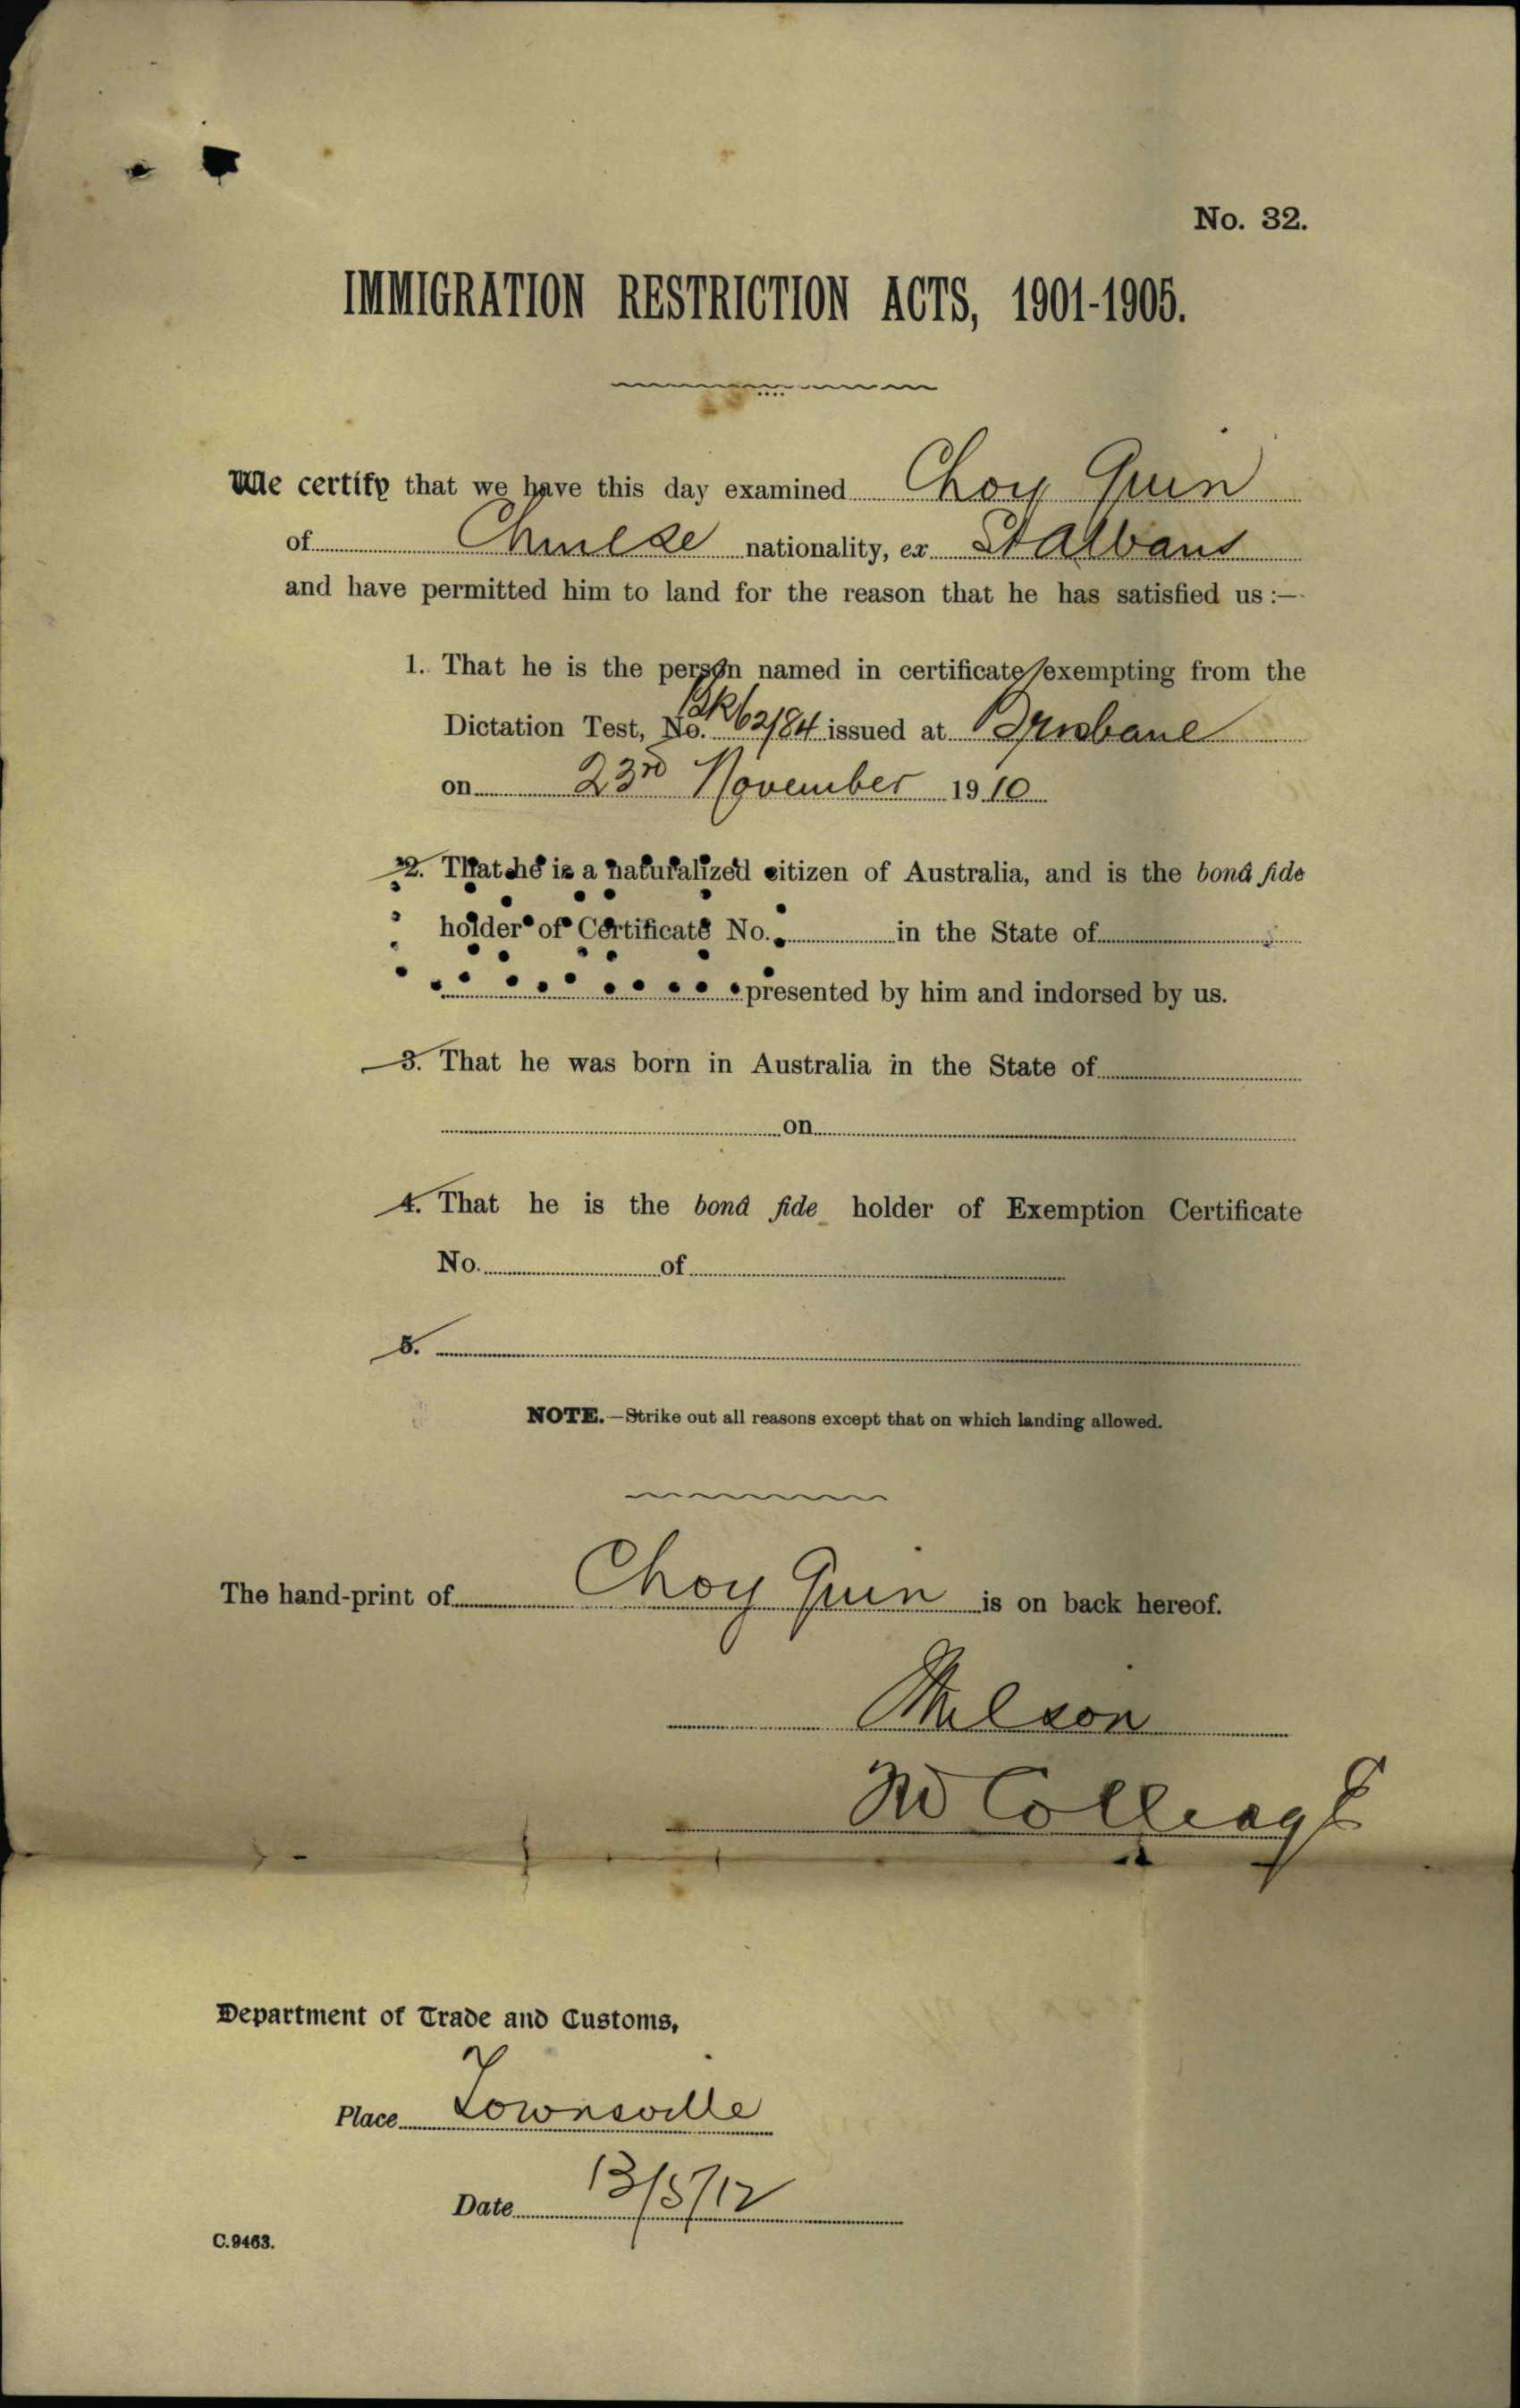 No. 32.
IMMIGRATION RESTRICTION ACTS, 1901-1905.
We certify that we have this day examined Choy Quin
of Chinese nationality, ex St Albans
and have permitted him to land for the reason that he has satisfied us :—
1. That he is the person named in certificate exempting from the
Dictation Test, No. 62/84 issued at Brisbane
on 23rd November 1910
2. That he is a naturalized citizen of Australia, and is the bonâ fide
holder of Certificate No. in the State of
presented by him and indorsed by us.
3. That he was born in Australia in the State of
on
4. That he is the bonâ fide holder of Exemption Certificate
No. of
5.
NOTE.—Strike out all reasons except that on which landing allowed.
The hand-print of Choy Quin is on back hereof.
Department of Trade and Customs,
Place Townsville
Date 13/5/12
C.9463.